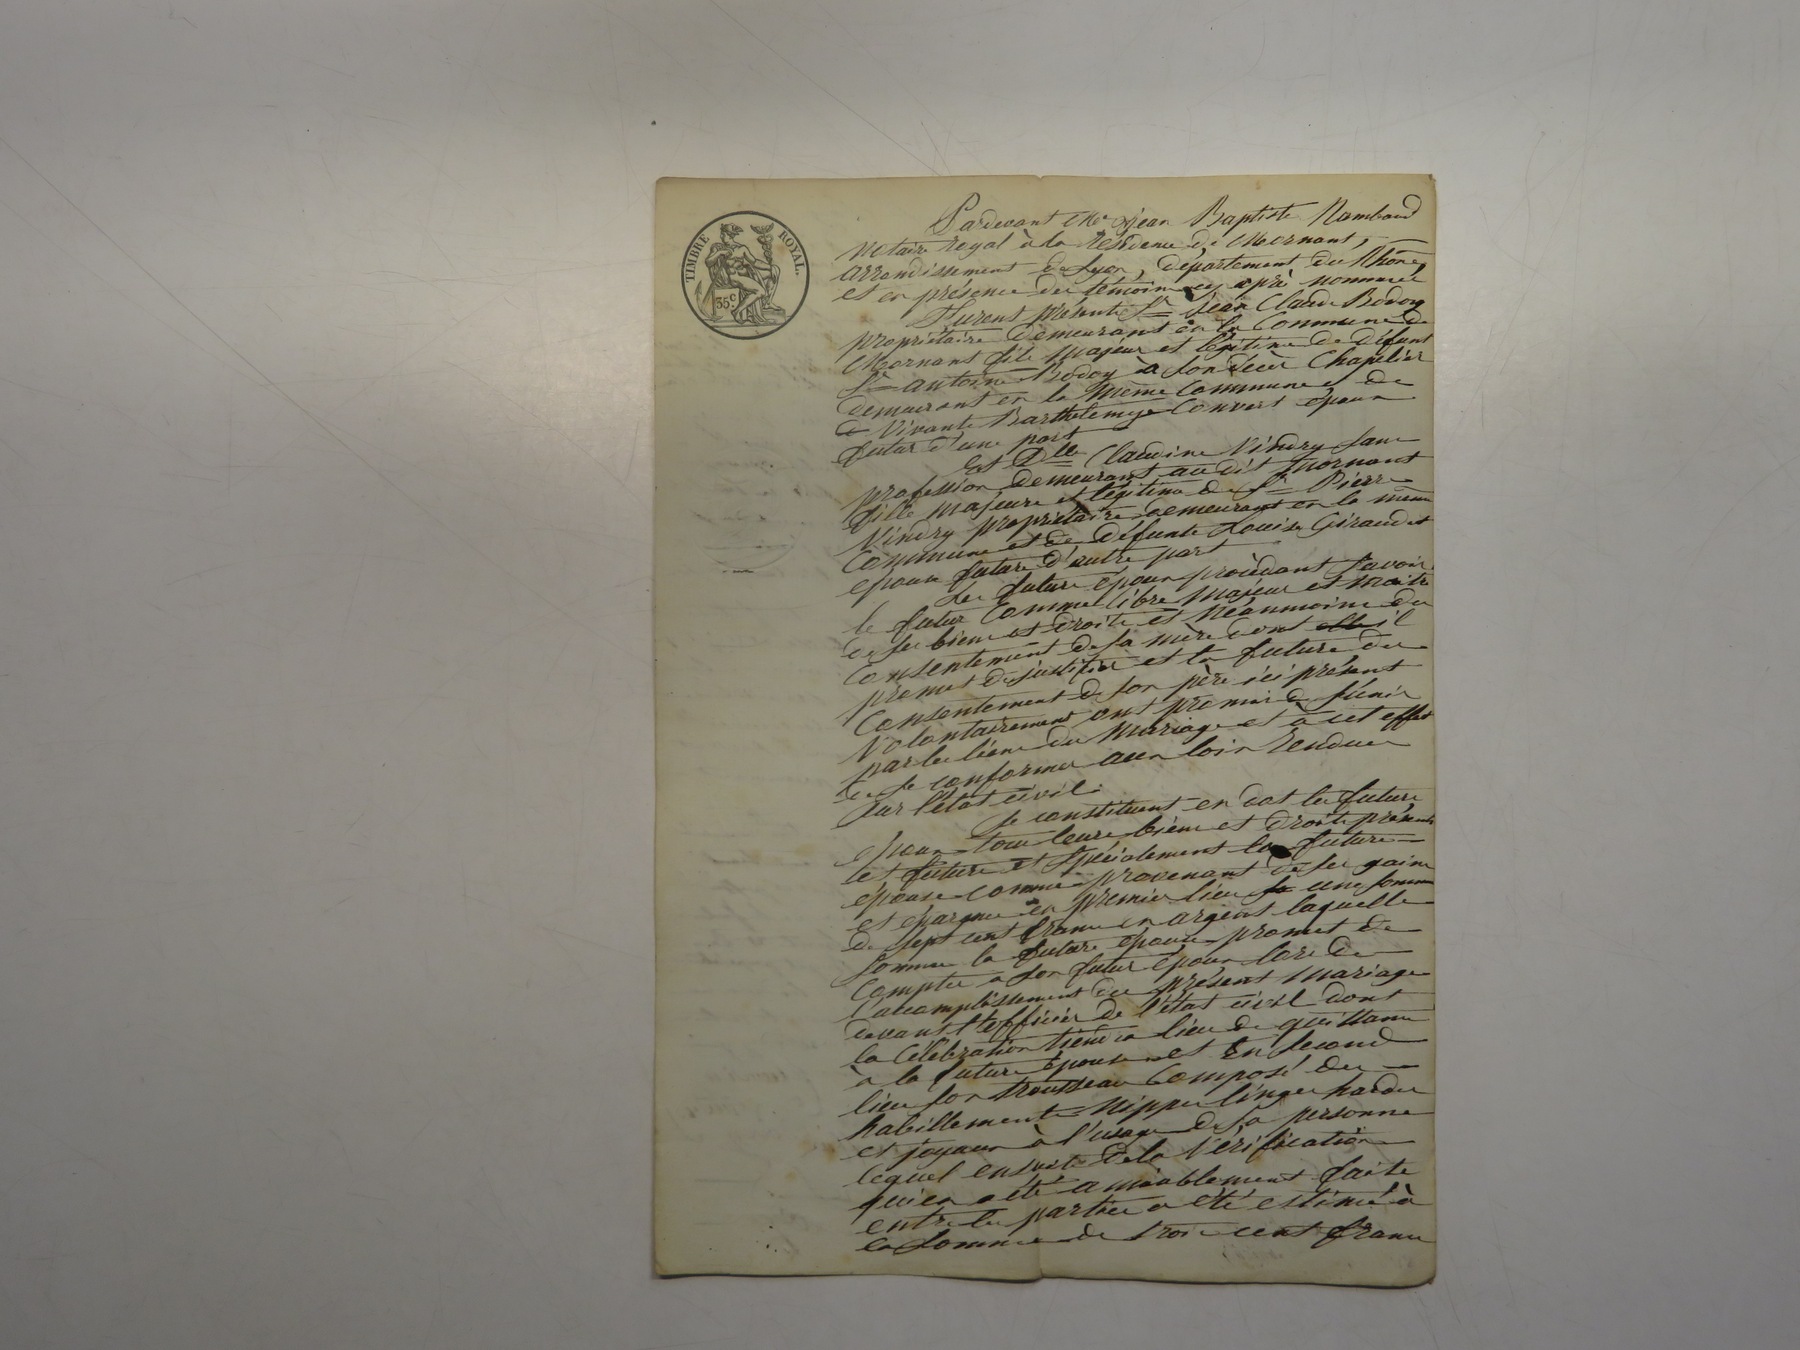 TIMBRE ROYAL.
35 c
Pardevant Me Jean Baptiste Rambaud
Notaire royal à la résidence de Mornant,
arrondissement de Lyon, département du Rhône,
et en présence des témoins cy après nommés
Furent présents Sr Jean Claude Bodoy
propriétaire demeurant en la Commune de
Mornant fils majeur et légitime de défunt
Sr antoine Bodoy à son décès Chapelier
demeurant en la même Commune et de
Vivante Barthelemye Convert époux
futur d'une part
Et Dlle Claudine Vindry sans
profession demeurant au dit Mornant
fille majeure et légitime de Sr Pierre
Vindry propriétaire demeurant en la même
Commune et de défunte Louise Giraudet
épouse future d'autre part
Les futurs époux procédant savoir
le futur Comme libre majeur et maître
de ses biens et droits et néanmoins du
Consentement de sa mère dont il
promet de justifier et la future du
Consentement de son père ici présent
Volontairement ont promis de s'unir
par les liens du Mariage et à cet effet
de se conformer aux loix rendues
sur l'état civil.
Se constituent en dot les futurs
époux tous leurs biens et droits présents
et futurs et spécialement la future
épouse comme provenant de ses gains
et épargnes en premier lieu une somme
de sept cent francs en argent laquelle
somme la future épouse promet de
Compter à son futur époux lors de
l'accomplissement du présent mariage
devant l'officier de l'état civil dont
la Célébration tiendra lieu de quittance
à la future épouse et En second
lieu son trousseau Composé des
habillements Nippes linges hardes
et joyaux à l'usage de sa personne
lequel ensuite de la Vérification
qui en a été amiablement faite
entre les parties a été estimé à
la somme de trois cent francs